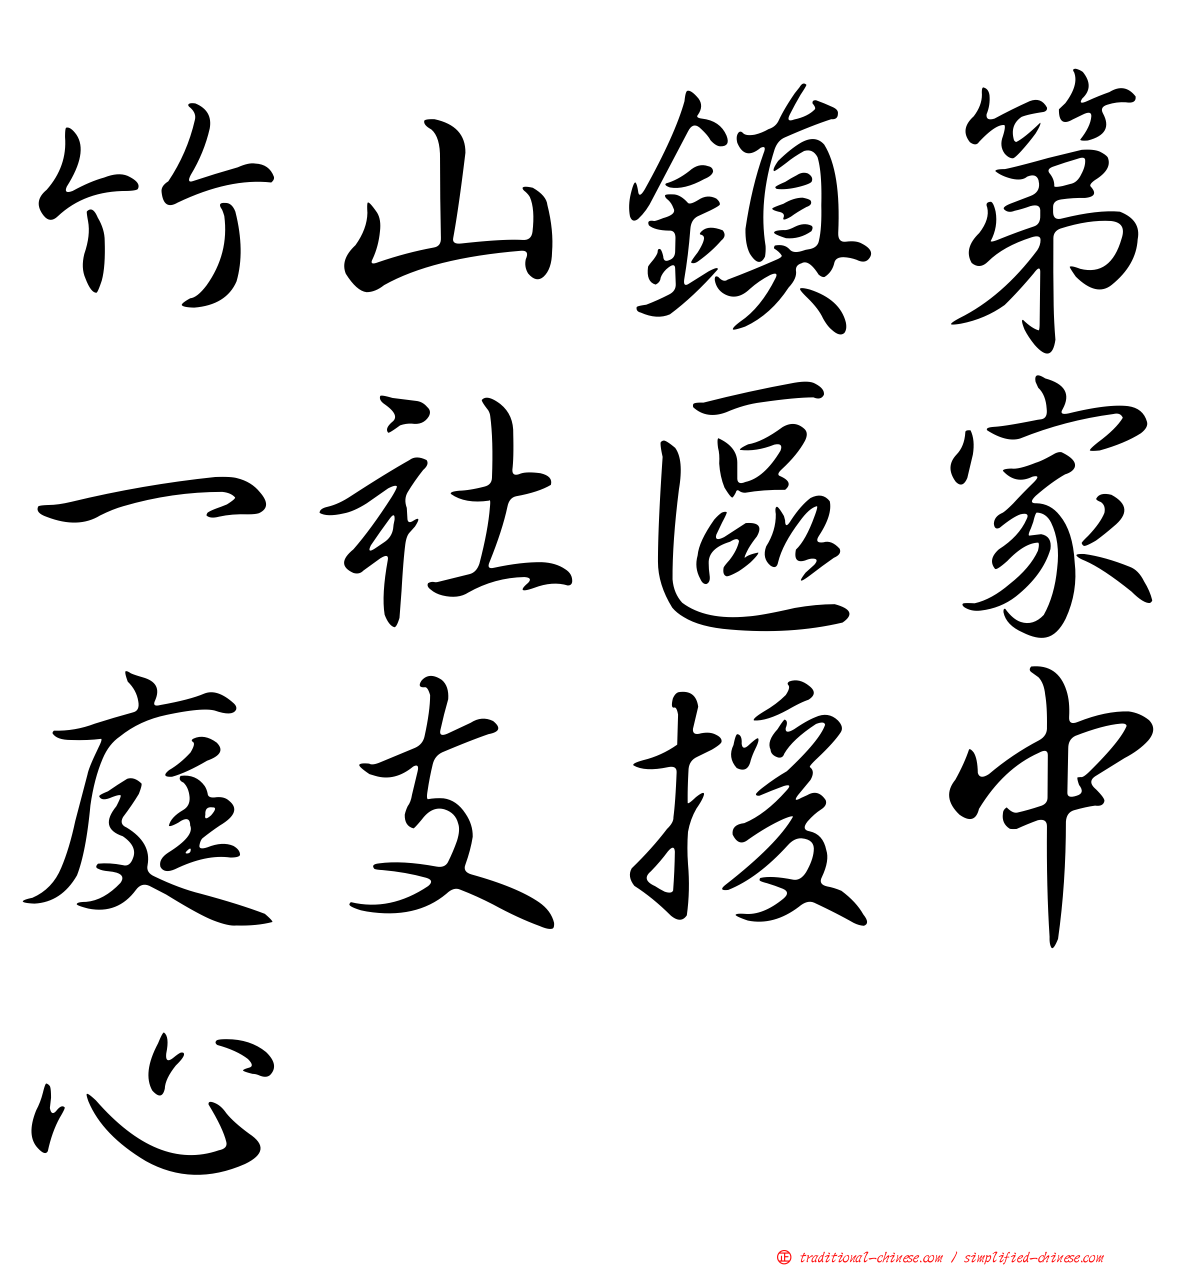 竹山鎮第
一社區家
庭支援中
心
正 traditional-chinese.com / simplified-chinese.com